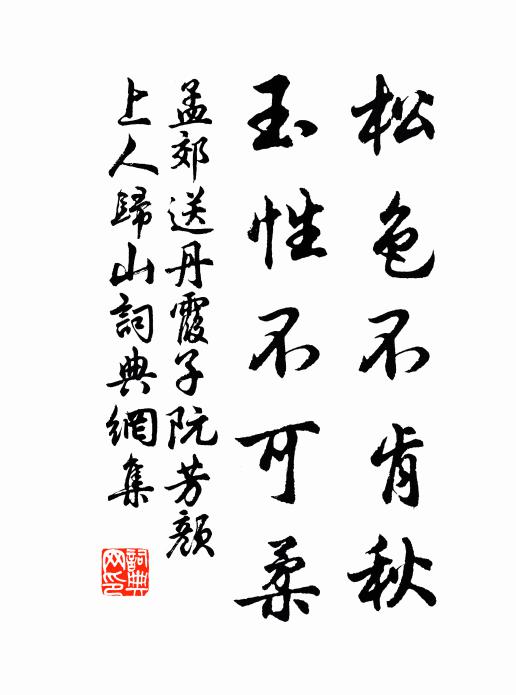 松色不肯秋
玉性不可柔
孟郊送丹霞子阮芳顏
上人歸山詞典網集
詞典
网印